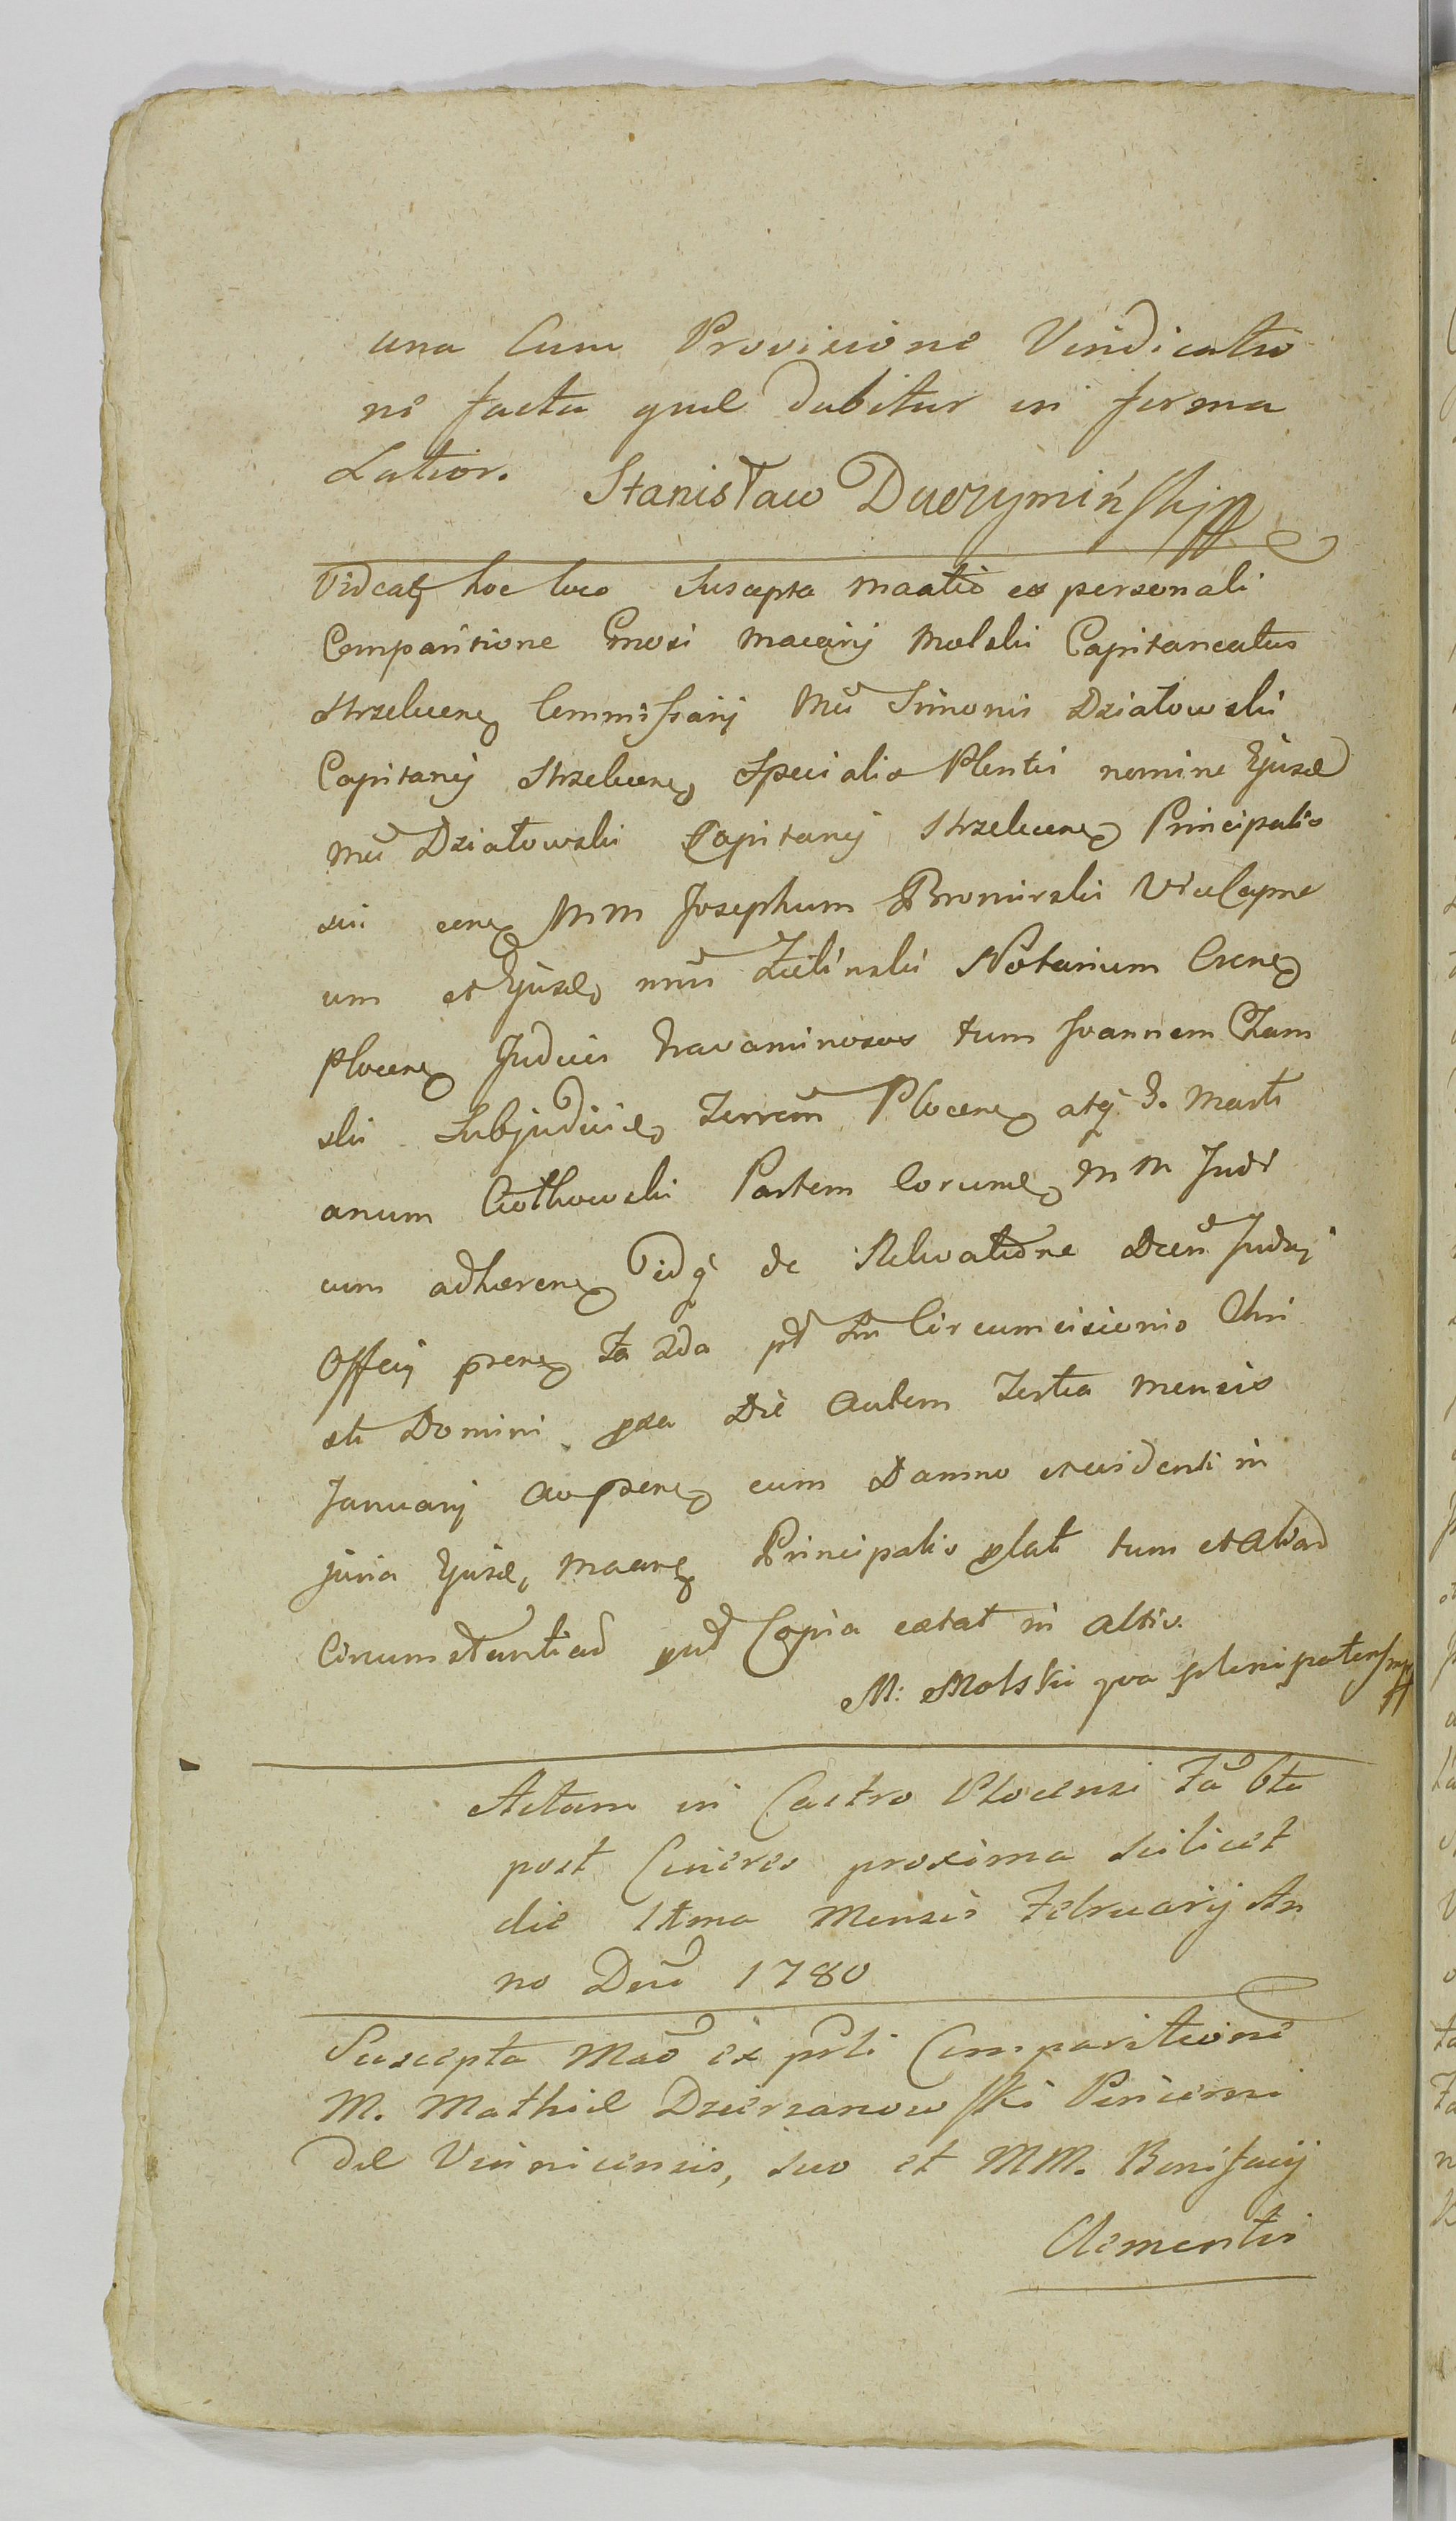 una Cum Provisione Vindicatio
ne facta quae dabitur in forma
Latior. Stanisław Duczymiński mpp
Videatq hoc loco Suscepta Maatio ex personali
Comparitione Gnosi Macarij Molski Capitaneatus
Strzelicen Commissarij Mci Simonis Działowski
Capitanej Strzelicen Specialis Plentis nomine Ejusd
Mci Działowski Capitanej Strzelicen Principalis
sui con MM Josephum Bromirski ViceCapne
um et Ejusd mci Zieliński Notarium Cren
Plocen Judicii Gravaminosos tum Joannem Cham
ski Subjudicie Terrem Plocen atq G. Marti
anum Ciołkowski Partem Eorumd MM Judi
cum adhaeren idq de Relevatione Decti Judij
Officij praen Fa 2da pt Fm Circumcisionis Chri
sti Domini pxa Die autem Tertia mensis
Januarij Ao praen cum Damno et evidenti in
juria Ejusd Maan Principalis plati tum et alias
Circumstantias put Copia extat in actis.
M: Molski qva plenipotens mpp
Actum in Castro Plocensi Fa 6ta
post Cineres proxima scilicet
die 11ma Mensis Februarij An
no Dni 1780
Suscepta Mao ex prli Comparitione
M. Mathiae Dzierzanowski Pincerni
dae Vinnicensis, suo et MM. Bonifacij
Clementis